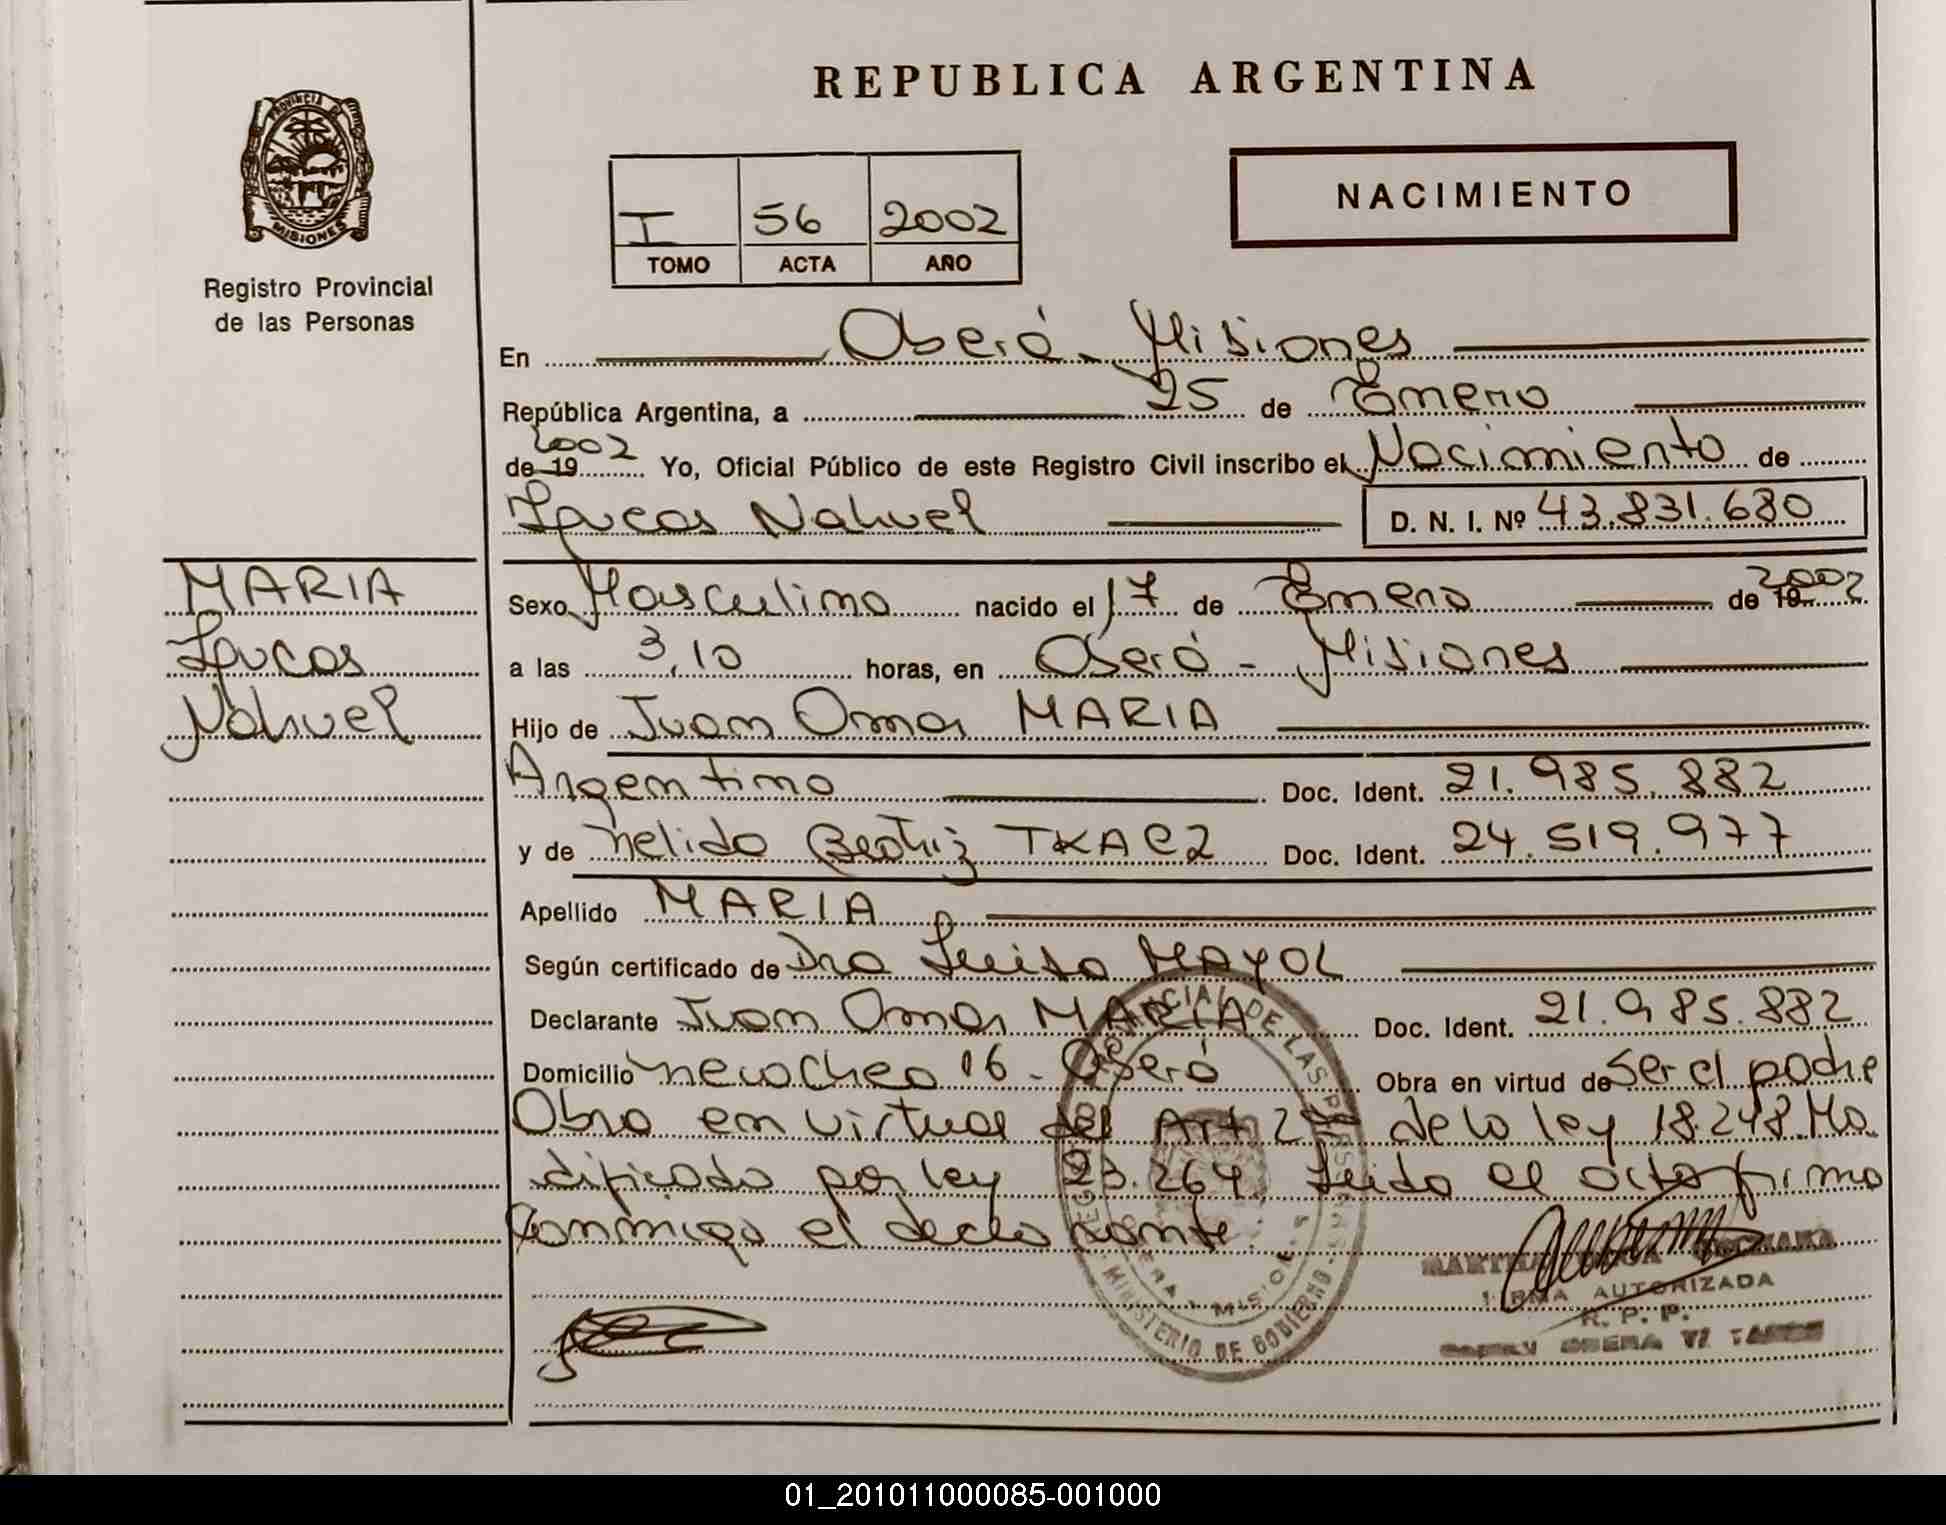 REPUBLICA ARGENTINA
PROVINCIA DE
MISIONES
Registro Provincial
de las Personas
I 56 2002
TOMO ACTA AÑO
NACIMIENTO
En Oberá - Misiones
República Argentina, a 25 de Enero
de 19 2002 Yo, Oficial Público de este Registro Civil inscribo el Nacimiento de
Lucas Nahuel D. N. I. Nº 43.831.680
MARIA
Lucas
Nahuel
Sexo Masculino nacido el 17 de Enero de 19 2002
a las 3,10 horas, en Oberá - Misiones
Hijo de Juan Omar MARIA
Argentino Doc. Ident. 21.985.882
y de Nelida Beatriz TKACZ Doc. Ident. 24.519.977
Apellido MARIA
Según certificado de Dra Luisa MAYOL
Declarante Juan Omar MARIA Doc. Ident. 21.985.882
Domicilio Necochea 16 - Oberá Obra en virtud de Ser el padre
Obra en virtud del Art 2 de la ley 18.248. Mo
dificado por ley 23.264. Leida el acta firma
Conmigo el declarante.
MINISTERIO DE GOBIERNO
FIRMA AUTORIZADA
R. P. P.
01_201011000085-001000